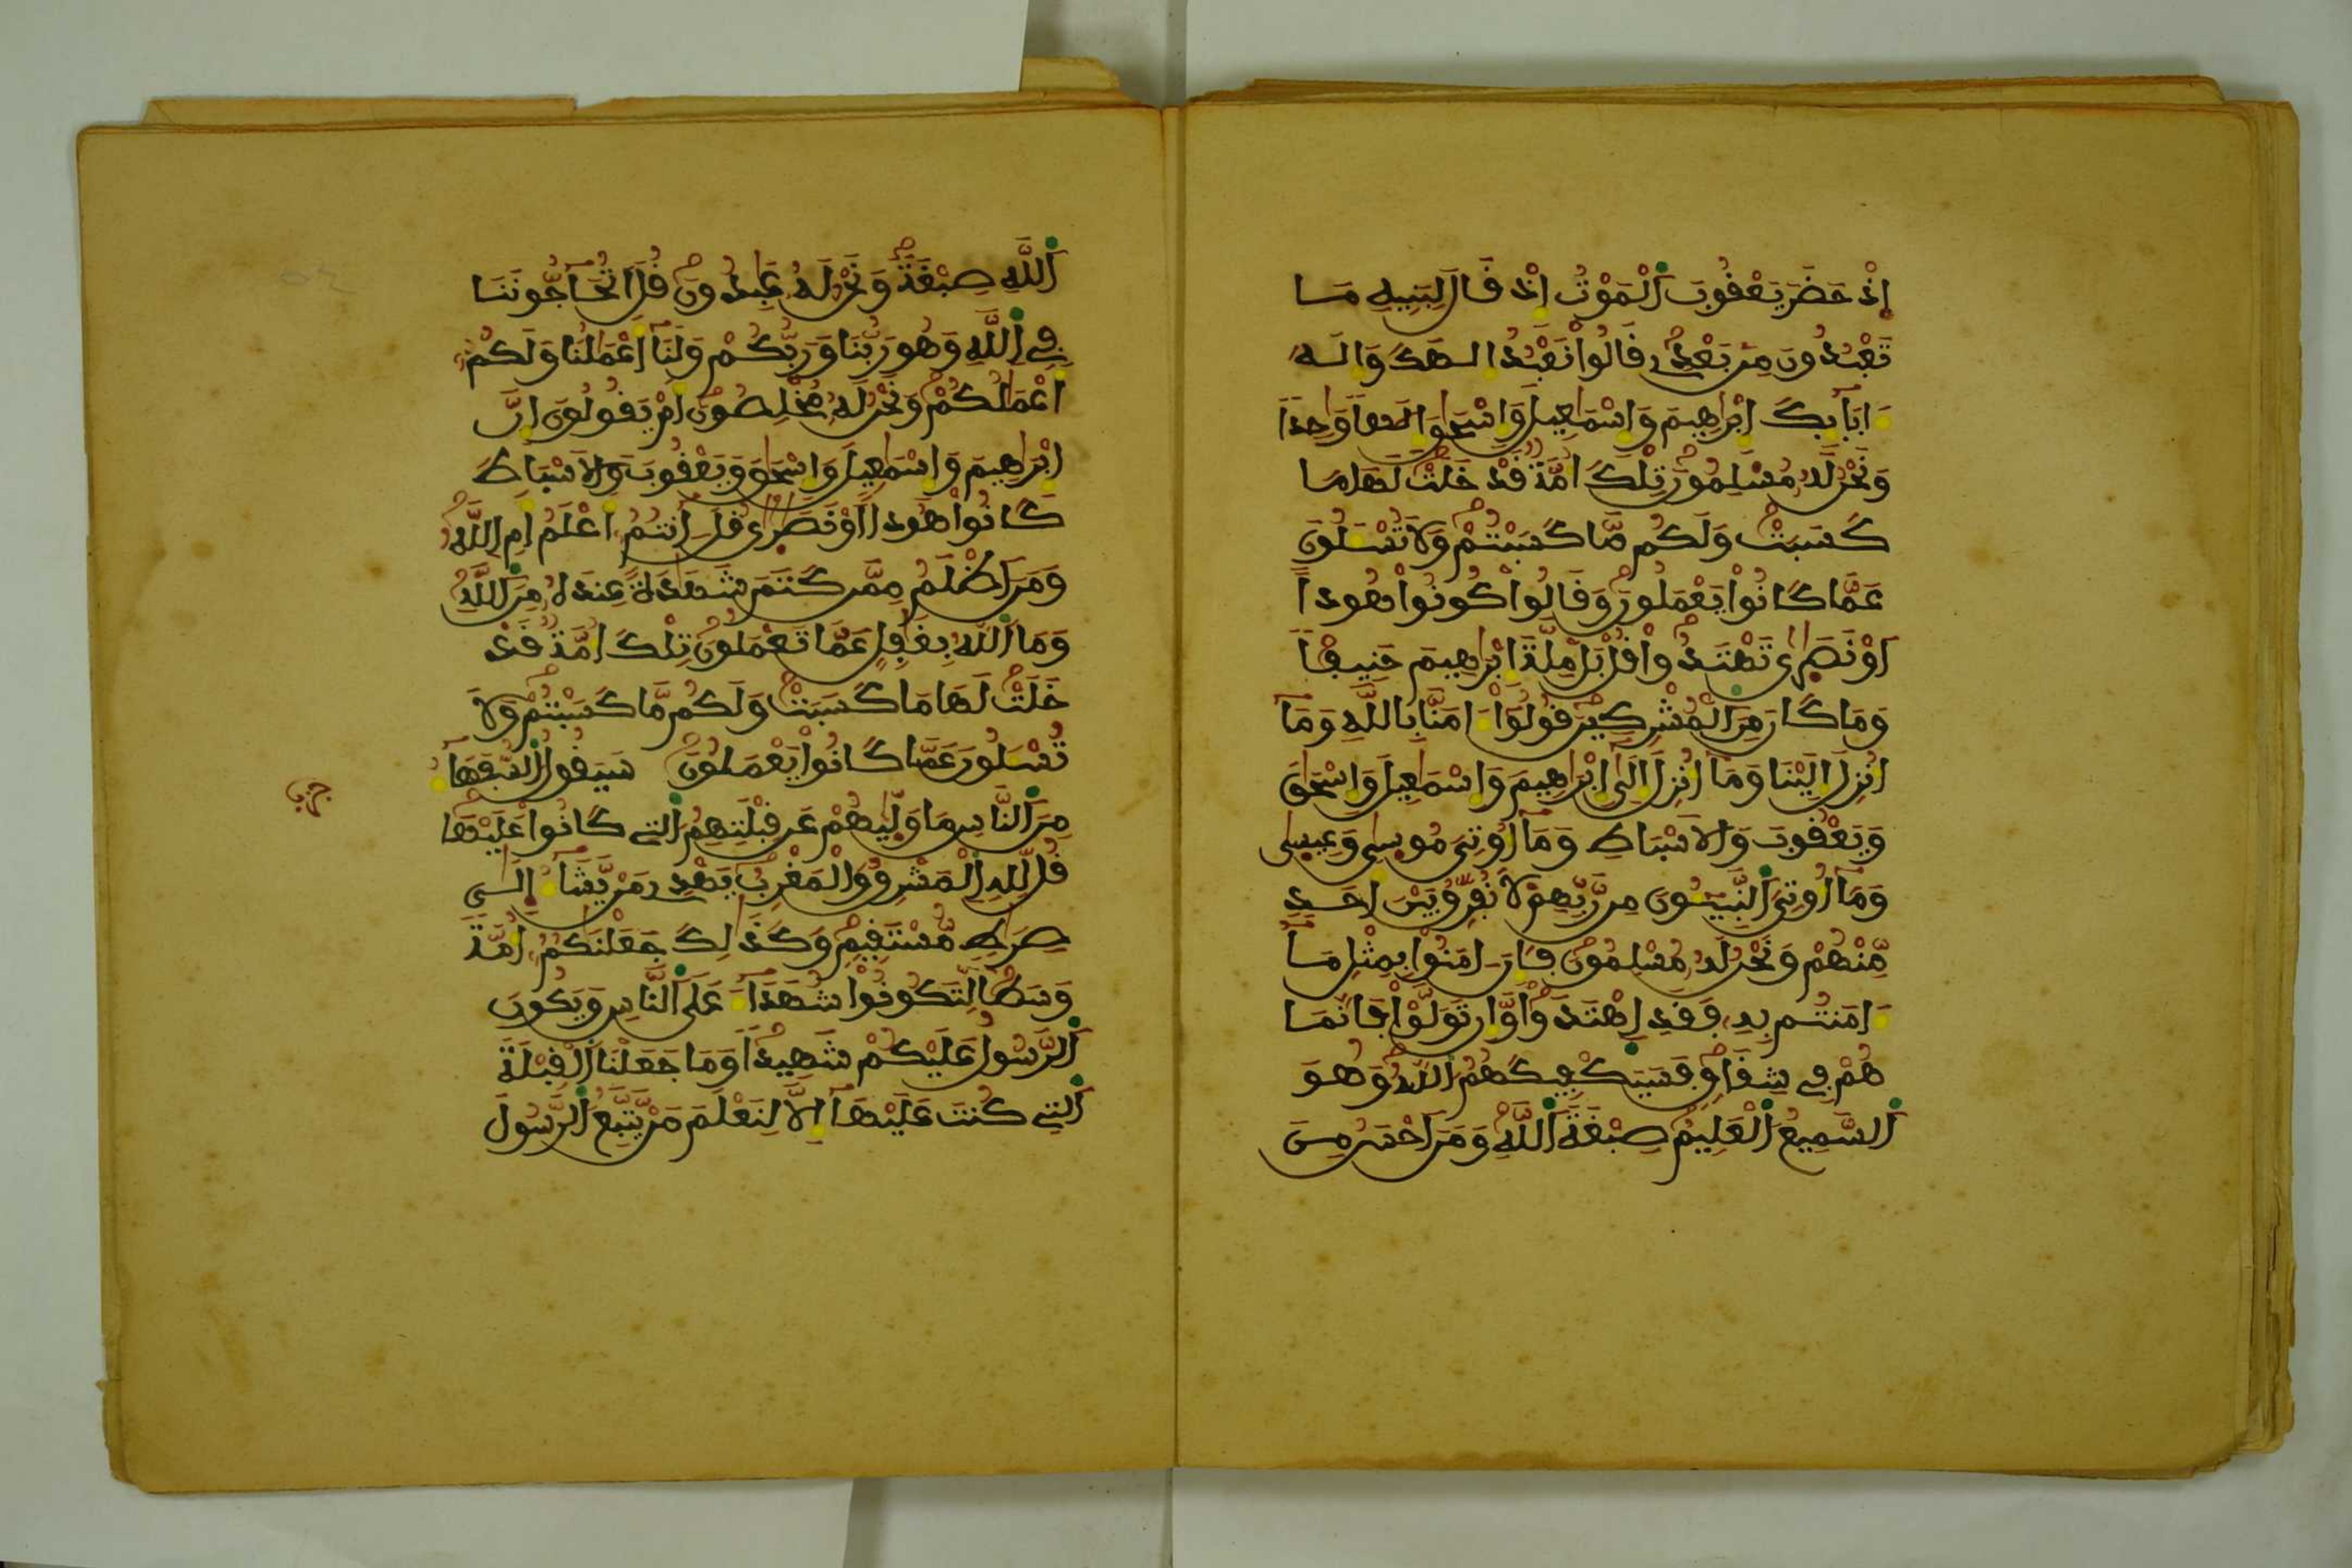 إِذْ حَضَرَ يَعْقُوبَ اَلْمَوْتُ إِذْ قَالَ لِبَنِيهِ مَا
تَعْبُدُونَ مِنۢ بَعْدِے قَالُواْ نَعْبُدُ إِلَٰهَكَ وَإِلَٰهَ
ءَابَآئِكَ إِبْرَٰهِيمَ وَإِسْمَٰعِيلَ وَإِسْحَٰقَ إِلَٰهاً وَٰحِداً
وَنَحْنُ لَهُۥ مُسْلِمُونَ تِلْكَ أُمَّةٌ قَدْ خَلَتْ لَهَا مَا
كَسَبَتْ وَلَكُم مَّا كَسَبْتُمْ وَلَا تُسْـَٔلُونَ
عَمَّا كَانُواْ يَعْمَلُونَ وَقَالُواْ كُونُواْ هُوداً
أَوْ نَصَٰرَىٰ تَهْتَدُواْ قُلْ بَلْ مِلَّةَ إِبْرَٰهِيمَ حَنِيفاً
وَمَا كَانَ مِنَ اَلْمُشْرِكِينَ قُولُوٓاْ ءَامَنَّا بِاللَّهِ وَمَآ
أُنزِلَ إِلَيْنَا وَمَآ أُنزِلَ إِلَىٰٓ إِبْرَٰهِيمَ وَإِسْمَٰعِيلَ وَإِسْحَٰقَ
وَيَعْقُوبَ وَالْأَسْبَاطِ وَمَآ أُوتِيَ مُوسَىٰ وَعِيسَىٰ
وَمَآ أُوتِيَ اَلنَّبِيـُٔونَ مِن رَّبِّهِمْ لَا نُفَرِّقُ بَيْنَ أَحَدٍ
مِّنْهُمْ وَنَحْنُ لَهُۥ مُسْلِمُونَ فَإِنْ ءَامَنُواْ بِمِثْلِ مَآ
ءَامَنتُم بِهِۦ فَقَدِ اِهْتَدَواْ وَّإِن تَوَلَّوْاْ فَإِنَّمَا
هُمْ فِے شِقَاقٍ فَسَيَكْفِيكَهُمُ اُللَّهُ وَهُوَ
اَلسَّمِيعُ اُلْعَلِيمُ صِبْغَةَ اَللَّهِ وَمَنْ أَحْسَنُ مِنَ
اَللَّهِ صِبْغَةً وَنَحْنُ لَهُۥ عَٰبِدُونَ قُلْ أَتُحَآجُّونَنَا
فِے اِللَّهِ وَهُوَ رَبُّنَا وَرَبُّكُمْ وَلَنَآ أَعْمَٰلُنَا وَلَكُمُۥٓ
أَعْمَٰلُكُمْ وَنَحْنُ لَهُۥ مُخْلِصُونَ أَمْ يَقُولُونَ إِنَّ
إِبْرَٰهِيمَ وَإِسْمَٰعِيلَ وَإِسْحَٰقَ وَيَعْقُوبَ وَالْأَسْبَاطَ
كَانُواْ هُوداً أَوْ نَصَٰرَىٰ قُلْ ءَآنتُمُۥٓ أَعْلَمُ أَمِ اِللَّهُ
وَمَنْ أَظْلَمُ مِمَّن كَتَمَ شَهَٰدَةً عِندَهُۥ مِنَ اَللَّهِ
وَمَا اَللَّهُ بِغَٰفِلٍ عَمَّا تَعْمَلُونَ تِلْكَ أُمَّةٌ قَدْ
خَلَتْ لَهَا مَا كَسَبَتْ وَلَكُم مَّا كَسَبْتُمْ وَلَا
تُسْـَٔلُونَ عَمَّا كَانُواْ يَعْمَلُونَ سَيَقُولُ اُلسُّفَهَآءُ
حزب
مِنَ اَلنَّاسِ مَا وَلَّيٰهُمْ عَن قِبْلَتِهِمُ اُلتِے كَانُواْ عَلَيْهَا
قُل لِّلهِ اِلْمَشْرِقُ وَالْمَغْرِبُ يَهْدِے مَنْ يَّشَآءُ إِلَىٰ
صِرَٰطٍ مُّسْتَقِيمٍ وَكَذَٰلِكَ جَعَلْنَٰكُمُۥٓ أُمَّةً
وَسَطاً لِّتَكُونُواْ شُهَدَآءَ عَلَى اَلنَّاسِ وَيَكُونَ
اَلرَّسُولُ عَلَيْكُمْ شَهِيداً وَمَا جَعَلْنَا اَلْقِبْلَةَ
اَلتِے كُنتَ عَلَيْهَآ إِلَّا لِنَعْلَمَ مَنْ يَّتَّبِعُ اُلرَّسُولَ